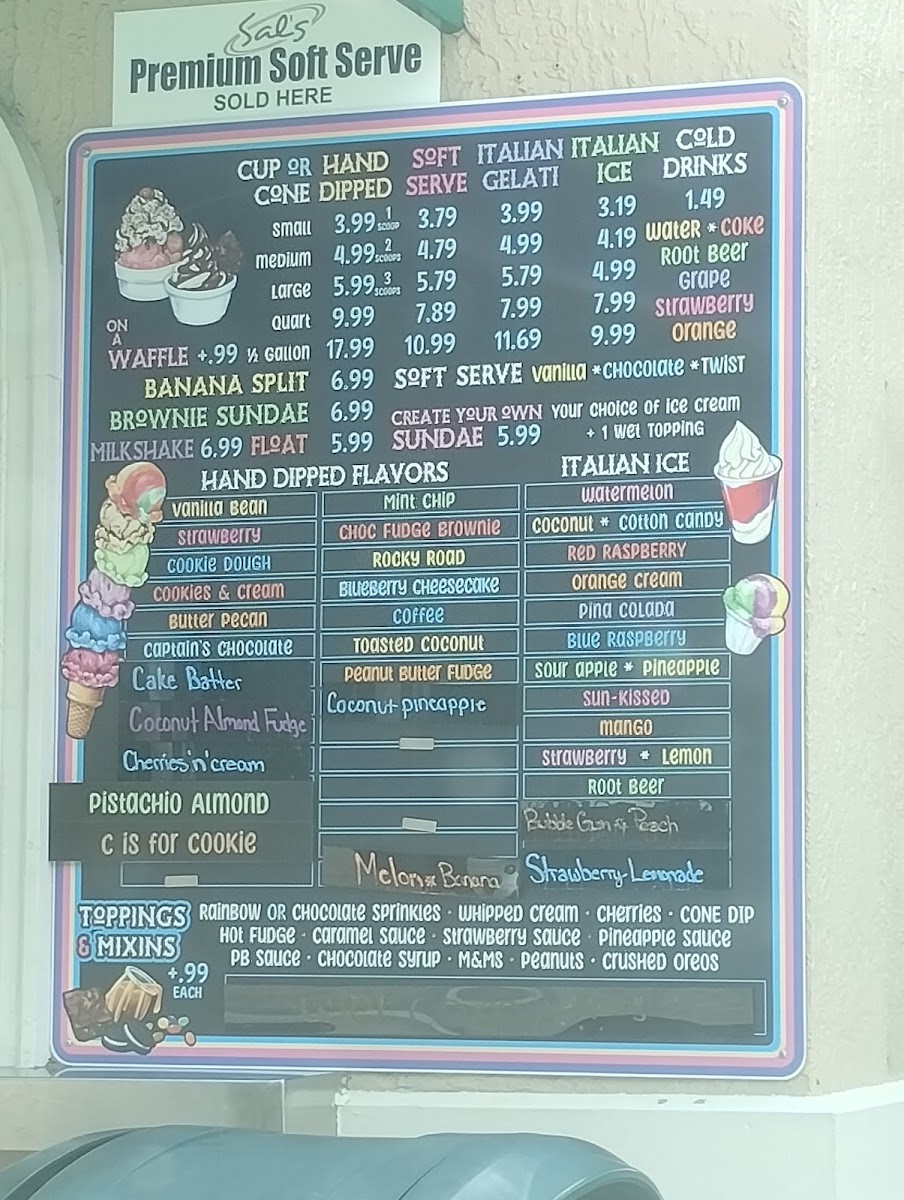 Sal's
Premium Soft Serve
SOLD HERE
CUP OR CONE HAND DIPPED SOFT SERVE ITALIAN GELATI ITALIAN ICE COLD DRINKS
small 3.99 1 SCOOP 3.79 3.99 3.19 1.49
medium 4.99 2 SCOOPS 4.79 4.99 4.19 water * COKE
Large 5.99 3 SCOOPS 5.79 5.79 4.99 ROOT BEER
Quart 9.99 7.89 7.99 7.99 Grape
½ Gallon 17.99 10.99 11.69 9.99 Strawberry
orange
ON A WAFFLE +.99
BANANA SPLIT 6.99
BROWNIE SUNDAE 6.99
MILKSHAKE 6.99 FLOAT 5.99
SOFT SERVE vanilla *CHOCOLATE *TWIST
CREATE YOUR OWN SUNDAE 5.99
YOUR CHOICE OF ICE CREAM
+ 1 WET TOPPING
HAND DIPPED FLAVORS
vanilla Bean
Strawberry
COOKIE DOUGH
COOKIES & CREAM
Butter Pecan
CAPTAIN'S CHOCOLATE
Cake Batter
Coconut Almond Fudge
Cherries 'n' cream
PISTACHIO ALMOND
C IS FOR COOKIE
MINT CHIP
CHOC FUDGE BROWNIE
ROCKY ROAD
BLUEBERRY CHEESECAKE
COFFEE
TOASTED COCONUT
PEANUT BUTTER FUDGE
Coconut-pineapple
Melon * Banana
ITALIAN ICE
watermelon
coconut * COTTON CANDY
RED RASPBERRY
orange cream
PINA COLADA
BLUE RASPBERRY
sour apple * Pineapple
SUN-KISSED
mango
Strawberry * Lemon
ROOT BEER
Bubble Gum * Peach
Strawberry-Lemonade
TOPPINGS & MIXINS
+.99
EACH
RAINBOW OR CHOCOLATE SPRINKLES · WHIPPED CREAM · CHERRIES · CONE DIP
HOT FUDGE · CARAMEL SAUCE · STRAWBERRY SAUCE · PINEAPPLE SAUCE
PB SAUCE · CHOCOLATE SYRUP · M&MS · PEANUTS · CRUSHED OREOS